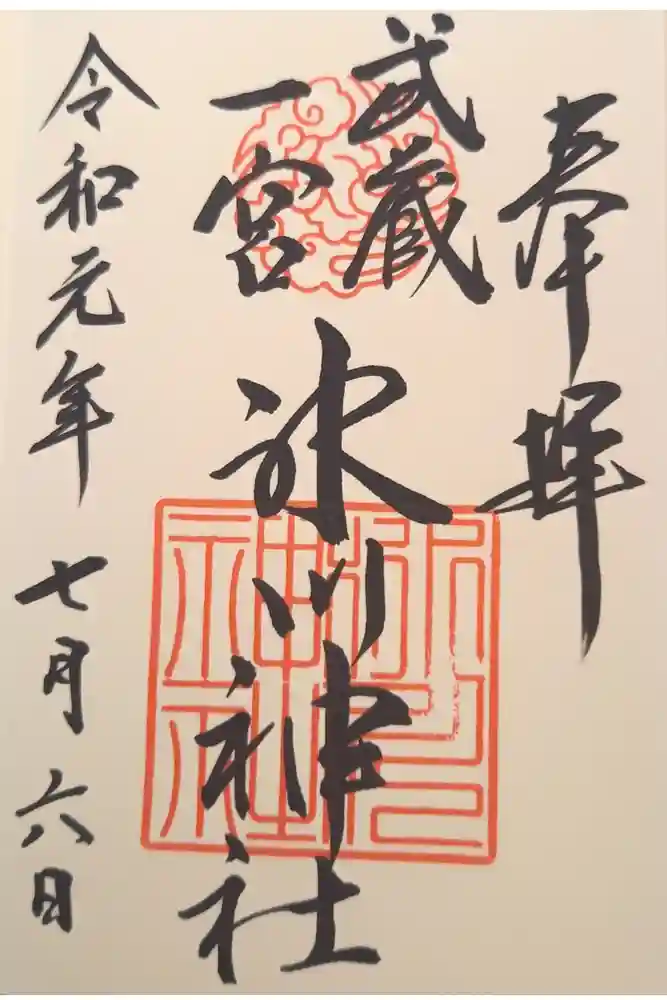 奉拝
武蔵
一宮
氷川神社
令和元年 七月 六日